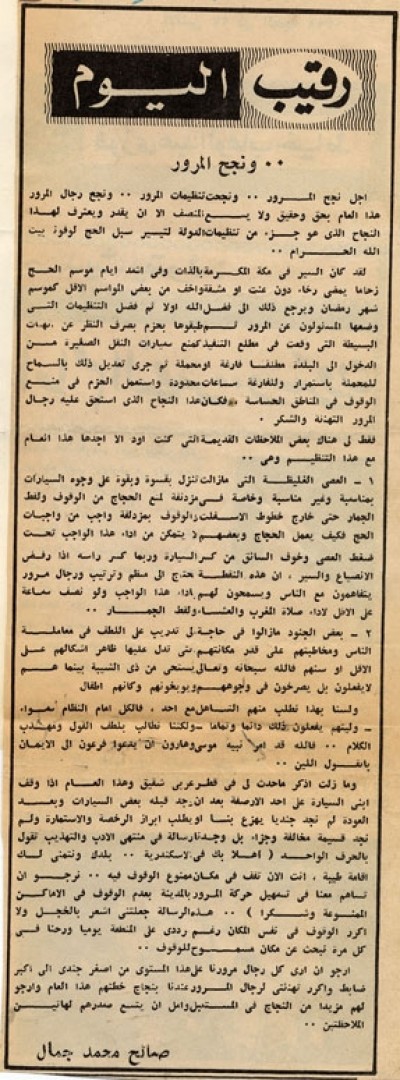 رقيب اليوم
٠٠ ونجح المرور
اجل نجح المرور ٠٠ ونجحت تنظيمات المرور ٠٠ ونجح رجال المرور
هذا العام بحق وحقيق ولا يسع المنصف الا ان يقدر ويعترف لهذا
النجاح الذى هو جزء من تنظيمات الدولة لتيسير سبل الحج لوفود بيت
الله الحرام ٠٠
لقد كان السير فى مكة المكرمة بالذات وفى اشد ايام موسم الحج
زحاما يمضى رخاء دون عنت او مشقة واخف من بعض المواسم الاقل كموسم
شهر رمضان ويرجع ذلك الى فضل الله اولا ثم فضل التنظيمات التى
وضعها المسئولون عن المرور ثم طبقوها بحزم بصرف النظر عن
البسيطة التى وقعت فى مطلع التنفيذ كمنع سيارات النقل الصغيرة من
الدخول الى البلدة مطلقا فارغة او محملة ثم جرى تعديل ذلك بالسماح
للمحملة باستمرار وللفارغة ساعات محدودة واستعمل الحزم فى منع
الوقوف فى المناطق الحساسة ٠٠ فكان هذا النجاح الذى استحق عليه رجال
المرور التهنئة والشكر ٠
فقط لى هناك بعض الملاحظات القديمة التى كنت اود الا اجدها هذا العام
مع هذا التنظيم وهى ٠٠
١ ـ العصى الغليظة التى مازالت تنزل بقسوة وبقوة على وجوه السيارات
بمناسبة وغير مناسبة وخاصة فى مزدلفة لمنع الحجاج من الوقوف ولقط
الجمار حتى خارج خطوط الاسفلت والوقوف بمزدلفة واجب من واجبات
الحج فكيف يعمل الحجاج وبعضهم لا يتمكن من اداء هذا الواجب تحت
ضغط العصى وخوف السائق من كسر السيارة وربما كسر راسه اذا رفض
الانصياع والسير ، ان هذه النقطة تحتاج الى منظم وترتيب ورجال مرور
يتفاهمون مع الناس ويسمحون لهم باداء هذا الواجب ولو نصف ساعة
على الاقل لاداء صلاة المغرب والعشاء ولقط الجمار ٠٠
٢ ـ بعض الجنود مازالوا فى حاجة الى تدريب على اللطف فى معاملة
الناس ومخاطبتهم على قدر مكانتهم التى تدل عليها ظاهر اشكالهم على
الاقل او سنهم فالله سبحانه وتعالى يستحى من ذى الشيبة بينما هم
لا يفعلون بل يصرخون فى وجوههم ويوبخونهم وكأنهم اطفال
ولسنا بهذا نطلب منهم التساهل مع احد ، فالكل امام النظام سواء
ـ وليتهم يفعلون ذلك دائما وتماما ـ ولكننا نطالب بلطف القول ومهذب
الكلام ٠٠ فالله قد امر نبيه موسى وهارون ان يدعوا فرعون الى الايمان
بالقول اللين ٠٠
وما زلت اذكر ماحدث لى فى قطر عربى شقيق وهذا العام اذا وقف
ابنى السيارة على احد الارصفة بعد ان وجد قبله بعض السيارات وبعد
العودة لم نجد جنديا يهزع بنا او يطلب ابراز الرخصة والاستمارة ولم
نجد قسيمة مخالفة وجزاء بل وجدنا رسالة فى منتهى الادب والتهذيب تقول
بالحرف الواحد ( اهلا بك فى اسكندرية ٠٠ بلدك ونتمنى لك
اقامة طيبة ، انت الان تقف فى مكان ممنوع الوقوف فيه ٠٠ نرجو ان
تساهم معنا فى تسهيل حركة المرور بالمدينة بعدم الوقوف فى الاماكن
الممنوعة وشكرا ) ٠٠ هذه الرسالة جعلتنى اشعر بالخجل ولا
اكرر الوقوف فى نفس المكان رغم ترددى على المنطقة يوميا ورحنا فى
كل مرة نبحث عن مكان مسموح للوقوف ٠٠
ارجو ان ارى كل رجال مرورنا على هذا المستوى من اصغر جندى الى اكبر
ضابط واكرر تهنئتى لرجال المرور عندنا بنجاح خطتهم هذا العام وارجو
لهم مزيدا من النجاح فى المستقبل وامل ان يتسع صدرهم لهاتين
الملاحظتين ٠٠
صالح محمد جمال